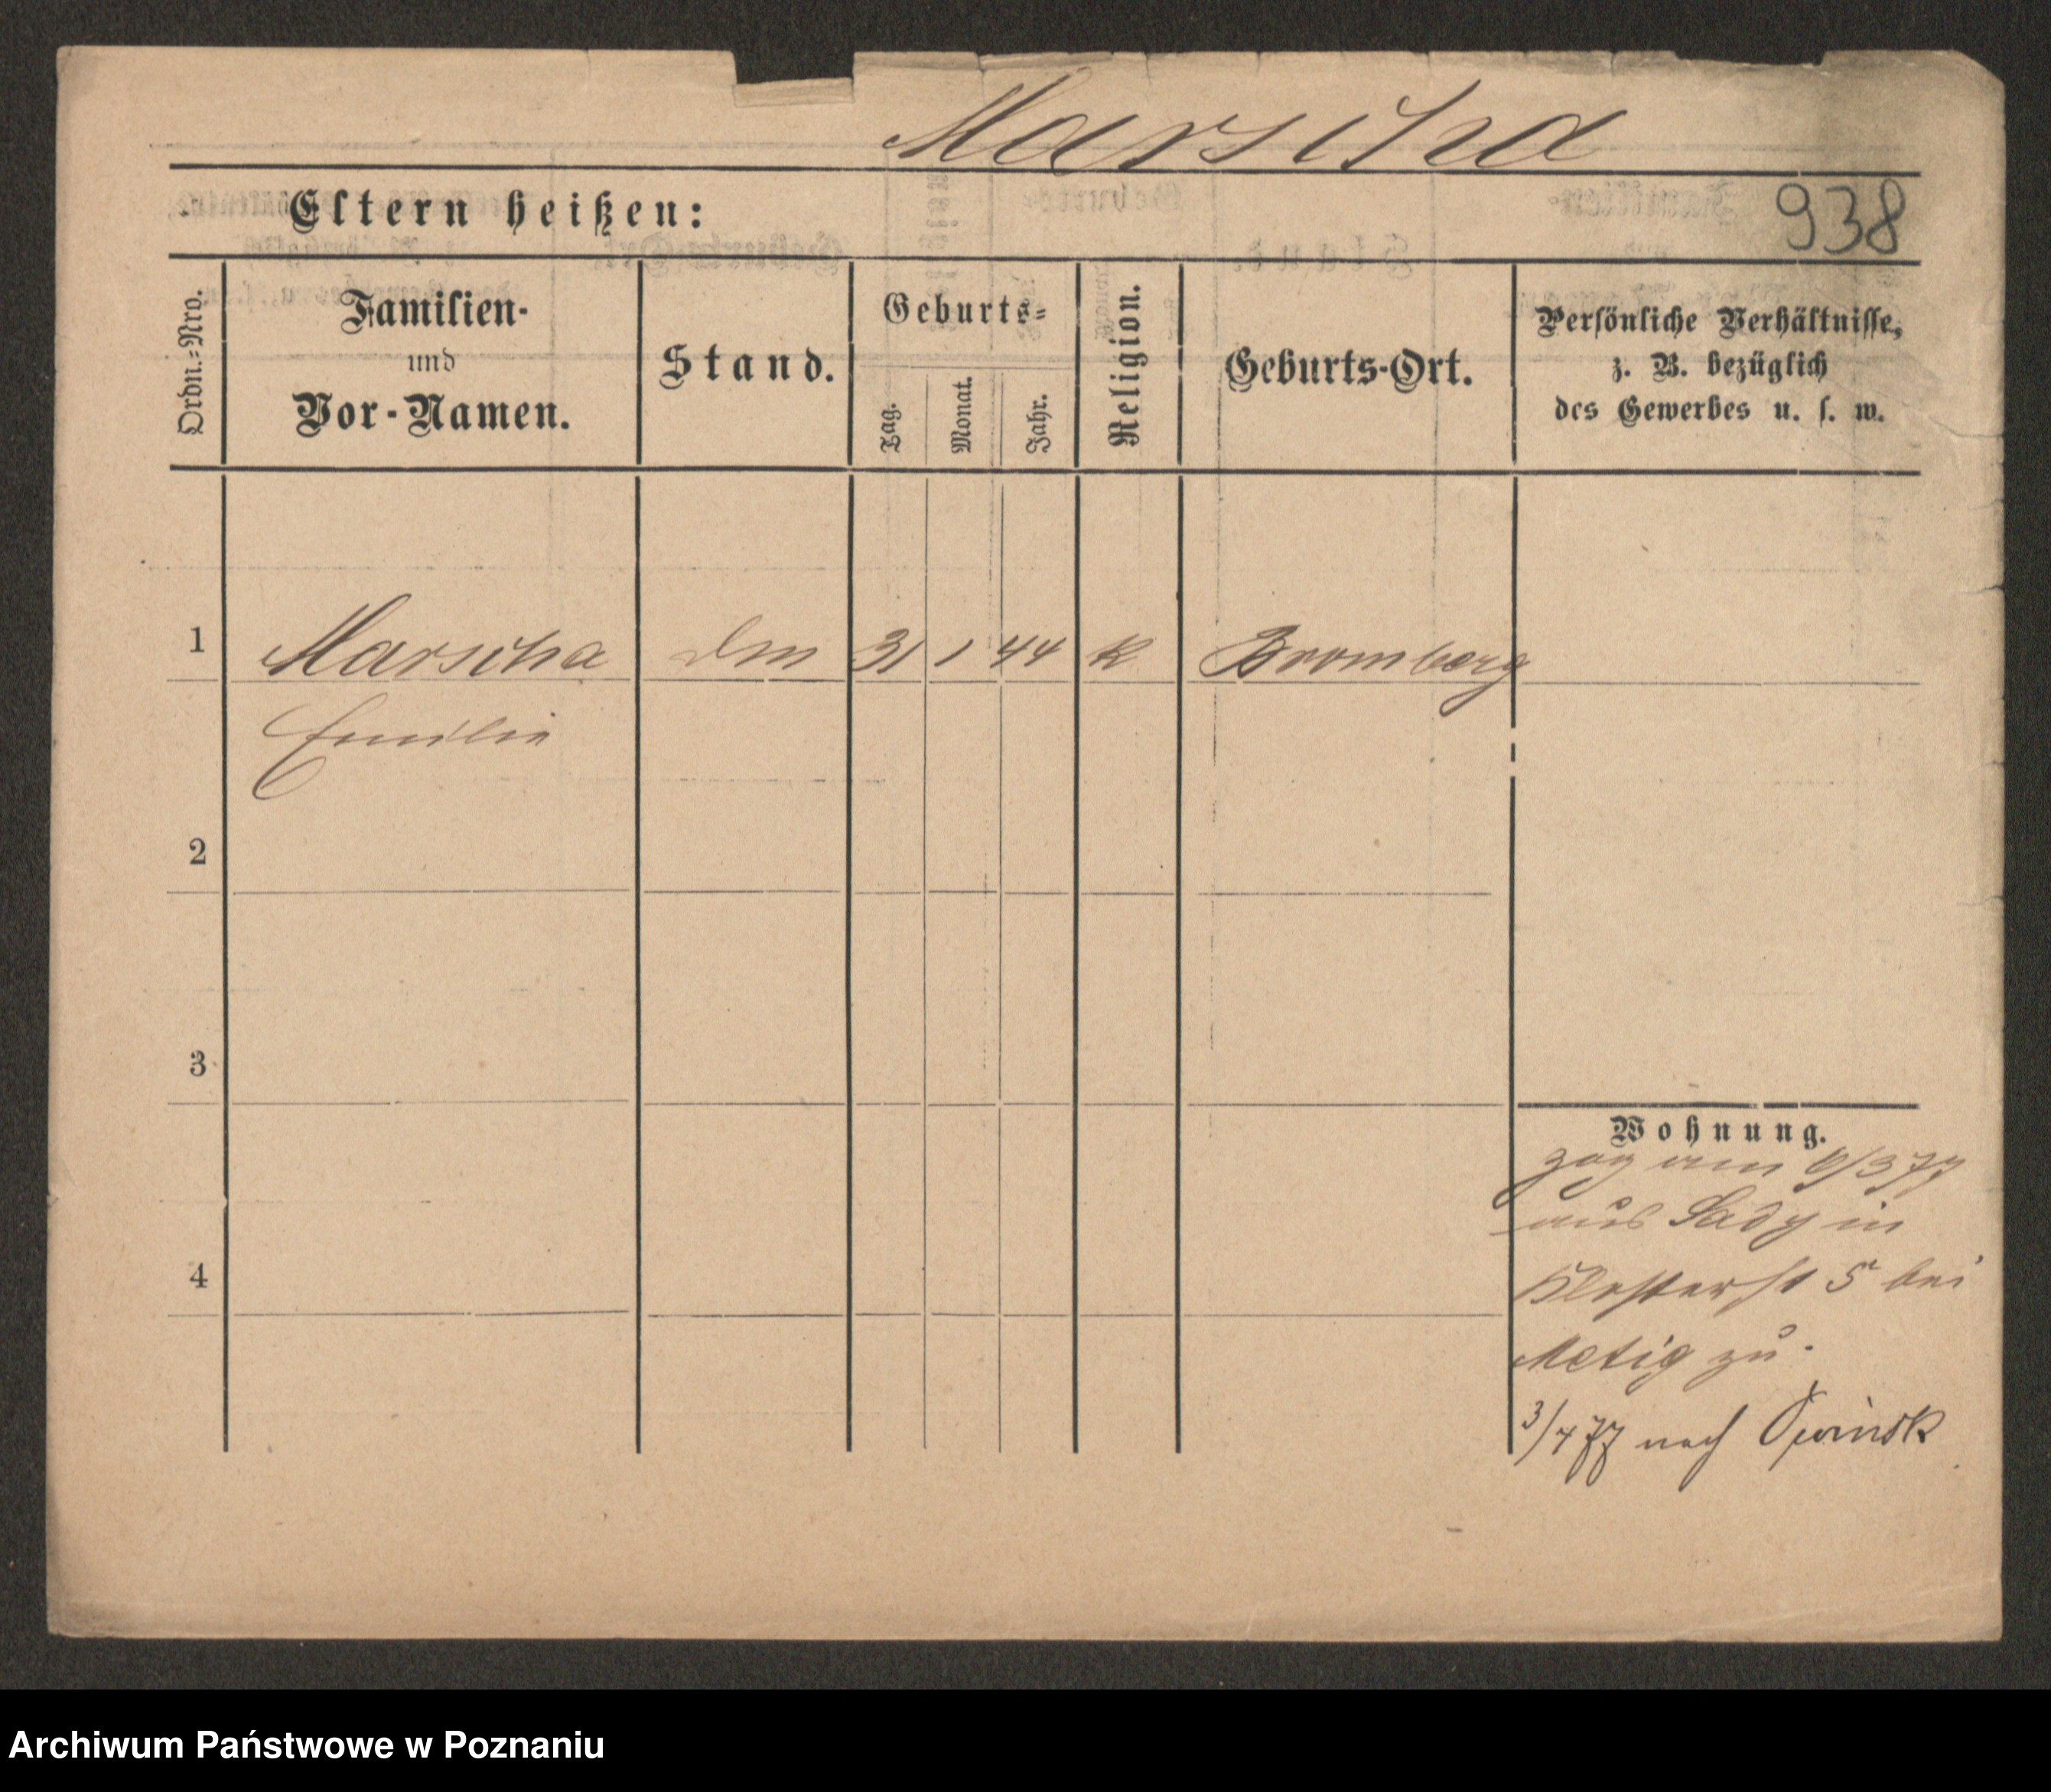 Marscha
938
Eltern heißen:
Ordn.-Nro.
Familien-
und
Vor-Namen.
Stand.
Geburts-
Tag.
Monat.
Jahr.
Religion.
Geburts-Ort.
Persönliche Verhältnisse,
z. B. bezüglich
des Gewerbes u. s. w.
1 Marscha Dm 31 1 44 k Bromberg
Emilie
2
3
4
Wohnung.
zog am 9/3 77
aus Sady in
Klosterst 5 bei
Metig zu.
3/4 77 nach Owinsk
Archiwum Państwowe w Poznaniu